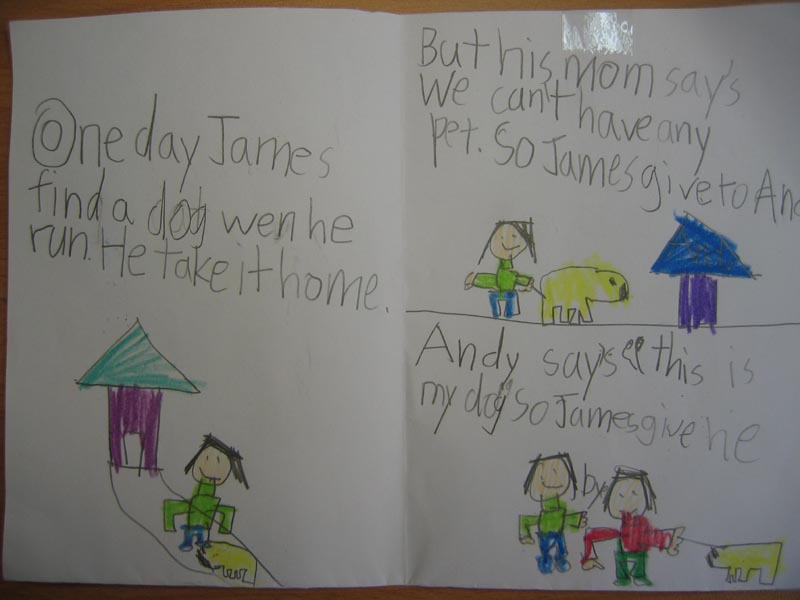 One day James
find a dog wen he
run. He take it home.
But his Mom say's
We can't have any
pet. So James give to And
Andy say's this is
my dog so James give he
by